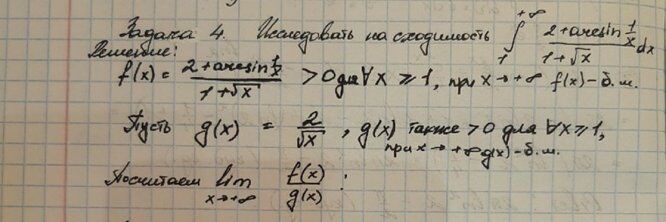 Задача 4. Исследовать на сходимость ∫₁^{+∞} (2+arcsin 1/x)/(1+√x) dx
Решение:
f(x) = (2+arcsin 1/x)/(1+√x) > 0 для ∀x ≥ 1, при x→+∞ f(x) – б.м.
Пусть g(x) = 2/√x, g(x) также > 0 для ∀x ≥ 1,
при x→+∞ g(x) – б.м.
Посчитаем lim_{x→+∞} f(x)/g(x) :